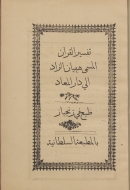 تفسير القرآن
المسمى هميان الزاد
الى دار المعاد
طبع فى زنجبار
بالمطبعة السلطانية